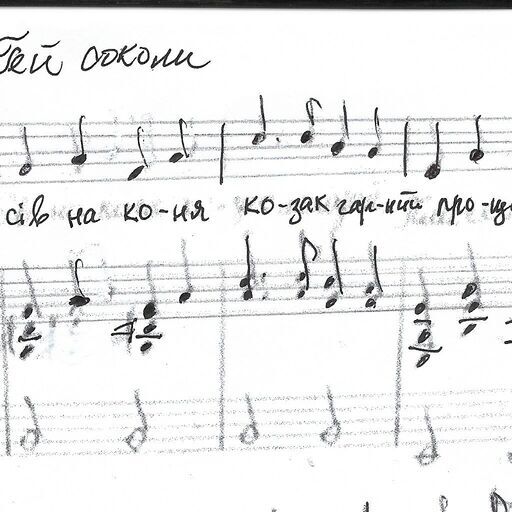 Гей соколи
сів на ко-ня ко-зак гар-ний про-